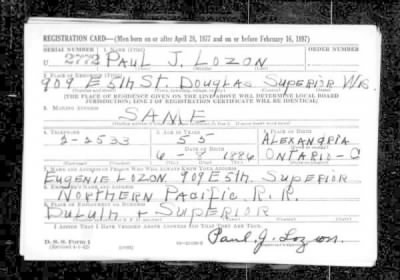 REGISTRATION CARD—(Men born on or after April 28, 1877 and on or before February 16, 1897)
SERIAL NUMBER 1. NAME (Print) ORDER NUMBER
U 2772 PAUL J. LOZON
2. PLACE OF RESIDENCE (Print)
909 E 5th ST. DOUGLAS SUPERIOR WIS.
[THE PLACE OF RESIDENCE GIVEN ON THE LINE ABOVE WILL DETERMINE LOCAL BOARD
JURISDICTION; LINE 2 OF REGISTRATION CERTIFICATE WILL BE IDENTICAL]
3. MAILING ADDRESS
SAME
4. TELEPHONE 5. AGE IN YEARS 6. PLACE OF BIRTH
2-2533 55 ALEXANDRIA
DATE OF BIRTH
1886 ONTARIO-C
7. NAME AND ADDRESS OF PERSON WHO WILL ALWAYS KNOW YOUR ADDRESS
EUGENIE LOZON 909 E 5th. SUPERIOR
8. EMPLOYER'S NAME AND ADDRESS
NORTHERN PACIFIC R.R.
9. PLACE OF EMPLOYMENT OR BUSINESS
DULUTH + SUPERIOR
I AFFIRM THAT I HAVE VERIFIED ABOVE ANSWERS AND THAT THEY ARE TRUE.
D. S. S. Form 1
Paul J. Lozon